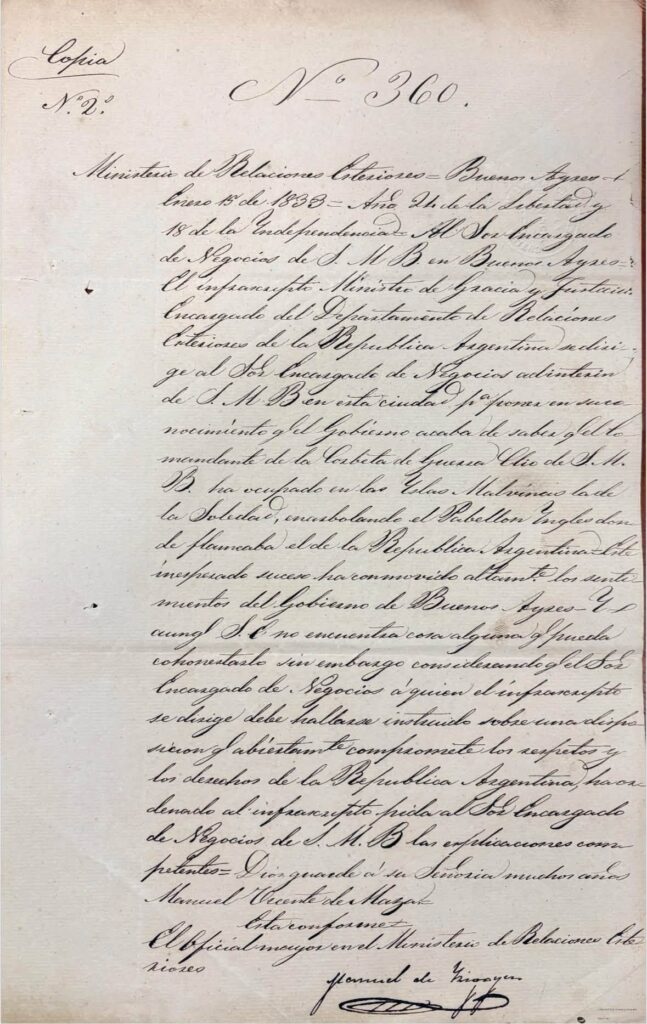 Copia
N.º 2.º
Nº 360.
Ministerio de Relaciones Esteriores = Buenos Ayres =
Enero 15 de 1833 = Año 24 de la Libertad, y
18 de la Independencia = Al Sor Encargado
de Negocios de S. M. B en Buenos Ayres =
El infrascripto Ministro de Gracia y Justicia
Encargado del Departamento de Relaciones
Esteriores de la Republica Argentina se diri-
ge al Sor Encargado de Negocios adinterin
de S. M. B en esta ciudad pª poner en su co
nocimiento q.e el Gobierno acaba de saber q.e el Co
mandante de la Corbeta de Guerra Clio de S. M.
B. ha ocupado en las Yslas Malvinas la de
la Soledad, enarbolando el Pabellon Ynglés don
de flameaba el de la Republica Argentina = Este
inesperado suceso ha conmovido altam.te los senti
mientos del Gobierno de Buenos Ayres = Y
aunq.e S. E no encuentra cosa alguna q.e pueda
cohonestarlo sin embargo considerando q.e el Sor
Encargado de Negocios á quien el infrascripto
se dirige debe hallarse instruido sobre una dispo
sicion q.e abiertam.te compromete los respetos y
los derechos de la Republica Argentina, ha or-
denado al infrascripto pida al Sor Encargado
de Negocios de S. M. B las esplicaciones com
petentes = Dios guarde á su Señoria muchos años
Manuel Vicente de Maza =
Esta conforme =
El Oficial mayor en el Ministerio de Relaciones Este
riores
Manuel de Yrigoyen